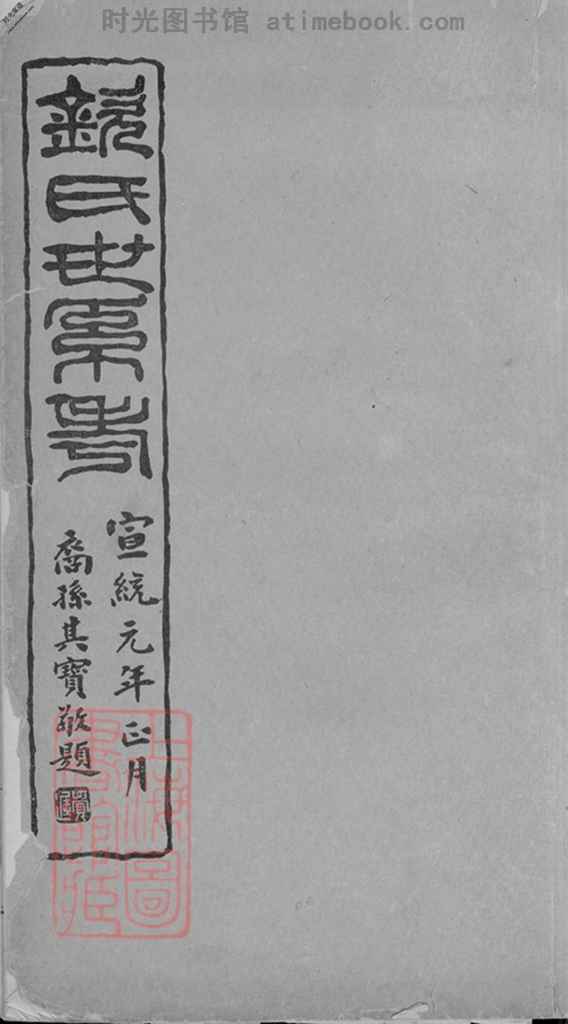 时光图书馆 atimebook.com
欽氏世系考
宣統元年正月
裔孫其寶敬題
上海圖
書館藏